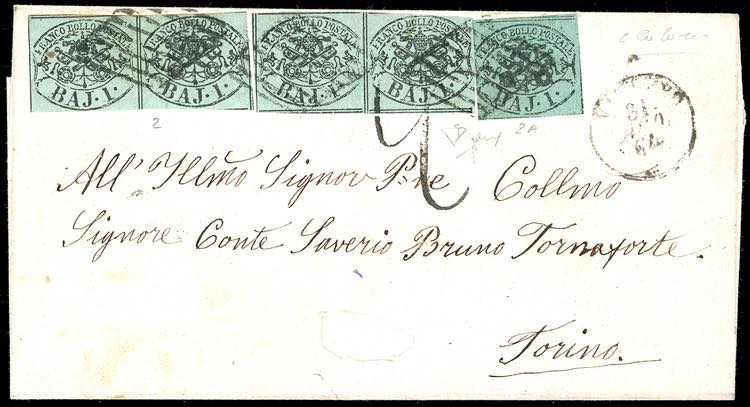 FRANCO BOLLO POSTALE FRANCO BOLLO POSTALE FRANCO BOLLO POSTALE FRANCO BOLLO POSTALE FRANCO BOLLO POSTALE
BAJ. 1. BAJ. 1. BAJ. 1. BAJ. 1. BAJ. 1.
2 2A
64
All' Illmo Signor P.ne Collmo
Signore Conte Saverio Bruno Tornaforte.
Torino.